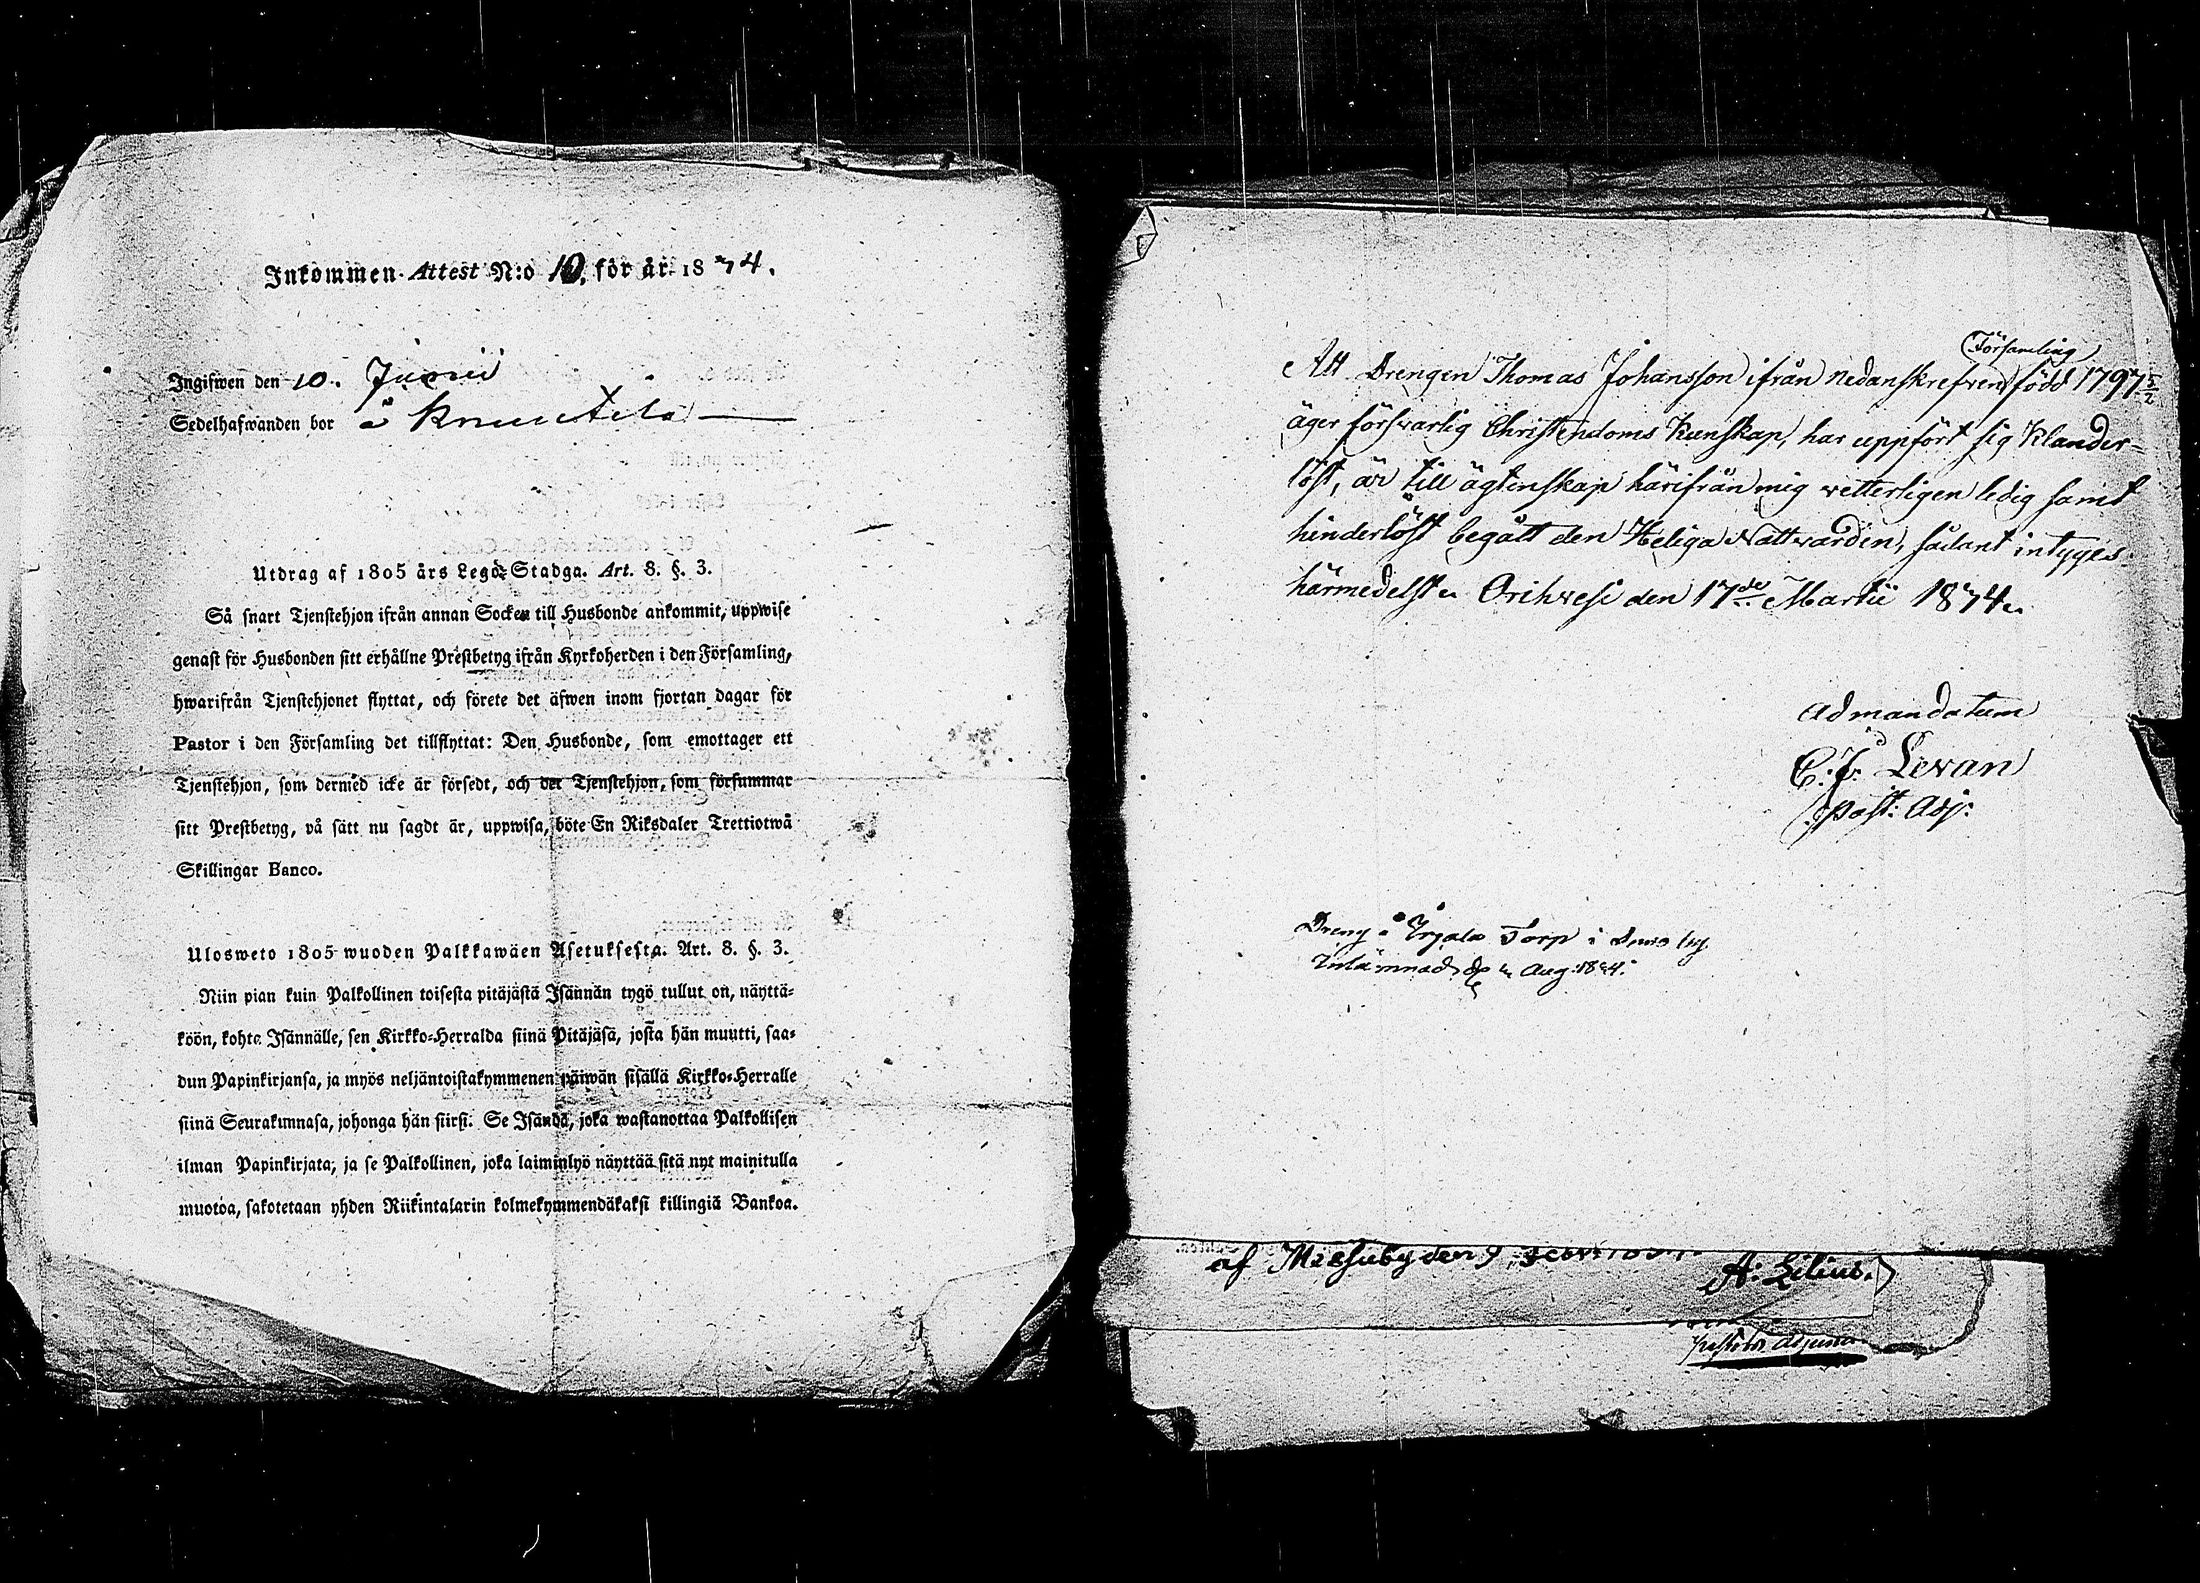 Inkommen Attest N:o 10. för år 1834.
Ingifwen den 10. Junii
Sedelhafwanden bor å Knuutila
Utdrag af 1805 års Lego-Stadga. Art. 8. §. 3.
Så snart Tjenstehjon ifrån annan Socken till Husbonde ankommit, uppwise
genast för Husbonden sitt erhållne Prestbetyg ifrån Kyrkoherden i den Församling,
hwarifrån Tjenstehjonet flyttat, och förete det äfwen inom fjortan dagar för
Pastor i den Församling det tillflyttat: Den Husbonde, som emottager ett
Tjenstehjon, som dermed icke är försedt, och det Tjenstehjon, som försummar
sitt Prestbetyg, på sätt nu sagdt är, uppwisa, böte En Riksdaler Trettiotwå
Skillingar Banco.
Ulosweto 1805 wuoden Palkkawäen Asetuksesta. Art. 8. §. 3.
Niin pian kuin Palkollinen toisesta pitäjästä Isännän tygö tullut on, näyttä-
köön, kohta Isännälle, sen Kirkko-Herralda siinä Pitäjäsä, josta hän muutti, saa-
dun Papinkirjansa, ja myös neljäntoistakymmenen päiwän sisällä Kirkko-Herralle
siinä Seurakunnasa, johonga hän siirsi: Se Isändä, joka wastanottaa Palkollisen
ilman Papinkirjata, ja se Palkollinen, joka laiminlyö näyttää sitä nyt mainitulla
muotoa, sakotetaan yhden Riikintalarin kolmekymmendäkaksi killingiä Bankoa.
Församling
Att Drengen Thomas Johansson ifrån nedanskrefven född 1797 5/2
äger försvarlig Christendoms Kunskap, har uppfört sig Klander-
löst, är till ägtenskap härifrån mig vetterligen ledig samt
hinderlöst begått den Heliga Nattvarden, sådant intyges
härmedelst Orihvesi den 17de Martii 1834.
Admandatum
C: J: Levan
past: Adj:
Dreng å Yrjälä Torp i by
Inlämnad d. Aug: 1834.
af den 9
A: Lilius.